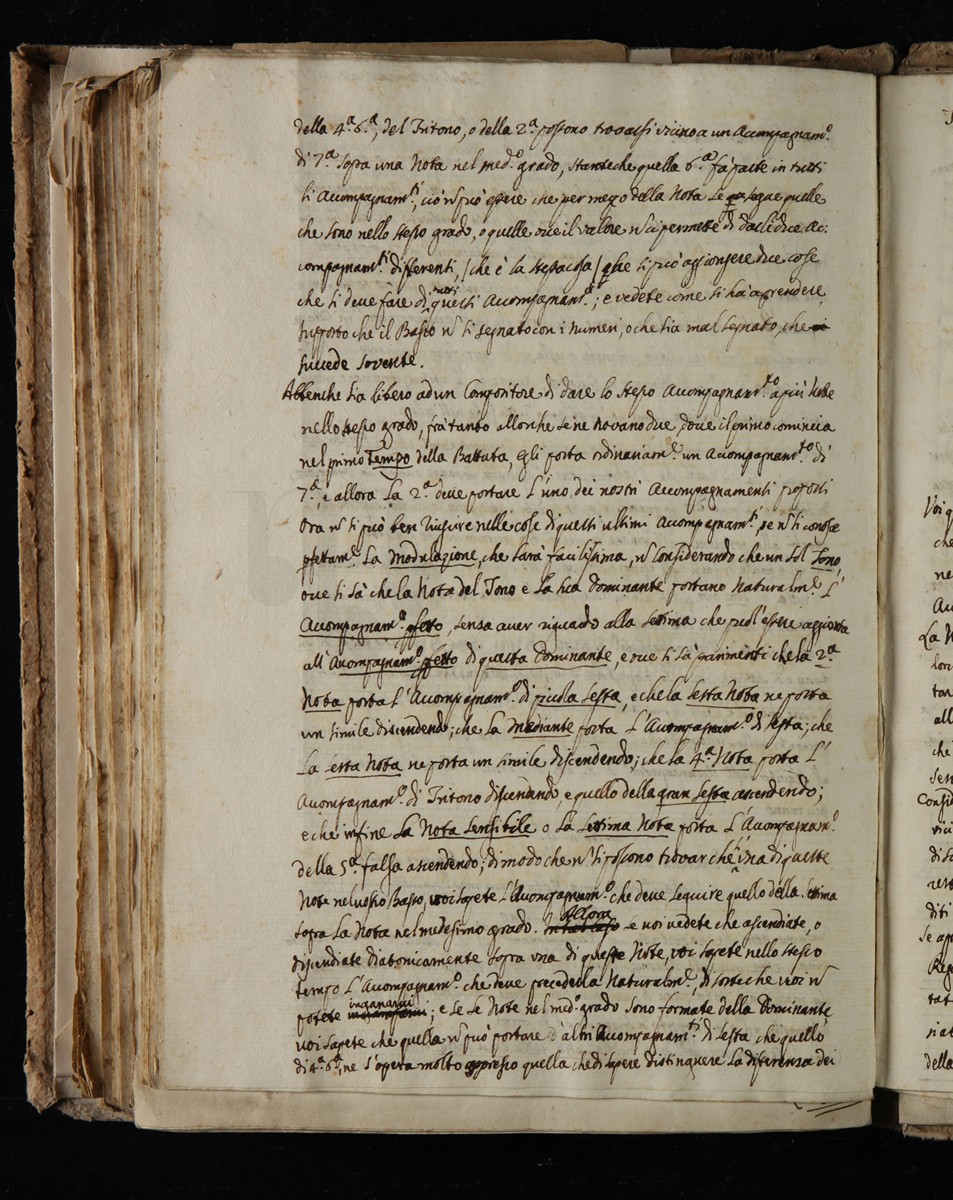 della 4.ª 6.ª, del Tritono, o della 2.ª possono trovarsi vicino a un Accompagnam.º
di 7.ª sopra una Nota nel med.º grado, stanteche quella 6.ª fà parte in tutti
li Accompagnam.ti, ciò ñ può essere che per mezo della Nota le segue quelle
che sono nello stesso grado, o quelle ove il valore ñ ci permette di darli due Ac:
compagnam.ti differenti, / che è la stessa cosa / che si può aggiongere due cose
che si deve fare di tutti questi Accompagnam.ti; e vedete come si hà a prendere
supposto che il Basso ñ si segnato con i numeri, o che sia mal segnato, che
succede sovente.
Abbenche sia libero ad un Compositore di dare lo stesso Accompagnam.to a più Note
nello stesso grado, frà tanto allorche se ne trovano due, dove il primo comincia
nel primo Tempo della Battuta, egli porta ordinariam.e un Accompagnam.to di
7.ª, e allora La 2.ª deve portare L'uno dei nostri Accompagnamenti proposti
Ora ñ si può ben riuscire nelle cose di questi ultimi Accompagnam.ti, se ñ si conosce
pfettam.e La Modulazione, che sarà facilissima, ñ considerando che un sol Tono,
ove si sà che la Nota del Tono e La sua Dominante portano Naturalm.e L'
Accompagnam.º pfetto, senza aver riguardo alla settima che può l'essere aggionta
all'Accompagnam.º pfetto di questa Dominante, e ove si sà parimenti che la 2.ª
Nota porta L'Accompagnam.º di picola sesta, e che la sesta Nota ne porta
un simile discendendo; che La Mediante porta L'Accompagnam.º di sesta; che
La sesta Nota ne porta un simile discendendo; che la 4.ª Nota porta L'
Accompagnam.º di Tritono discendendo, e quello della gran sesta ascendendo;
e che infine La Nota sensibile o La settima Nota porta L'Accompagnam.º
della 5.ª falsa ascendendo; di modo che ñ si possono trovar che una di queste
Note nel vostro Basso, voi sapete L'Accompagnam.º che deve seguire quello della settima
sopra La Nota nel medesimo grado. In tal caso Allora se voi vedete che ascendiate, o
discendiate diatonicamente sopra una di queste Note, voi sapete nello stesso
tempo L'Accompagnam.º che deve precederla Naturalm.e, di sorte che voi ñ
potete inganarvi; e se Le Note nel med.º grado sono formate della Dominante,
voi sapete che quella ñ può portare d'altri Accompagnam.ti di sesta che quello
di 4.ª 6.ª, ne s'opera molto appresso quella che di sapere distinguere La diferenza dei